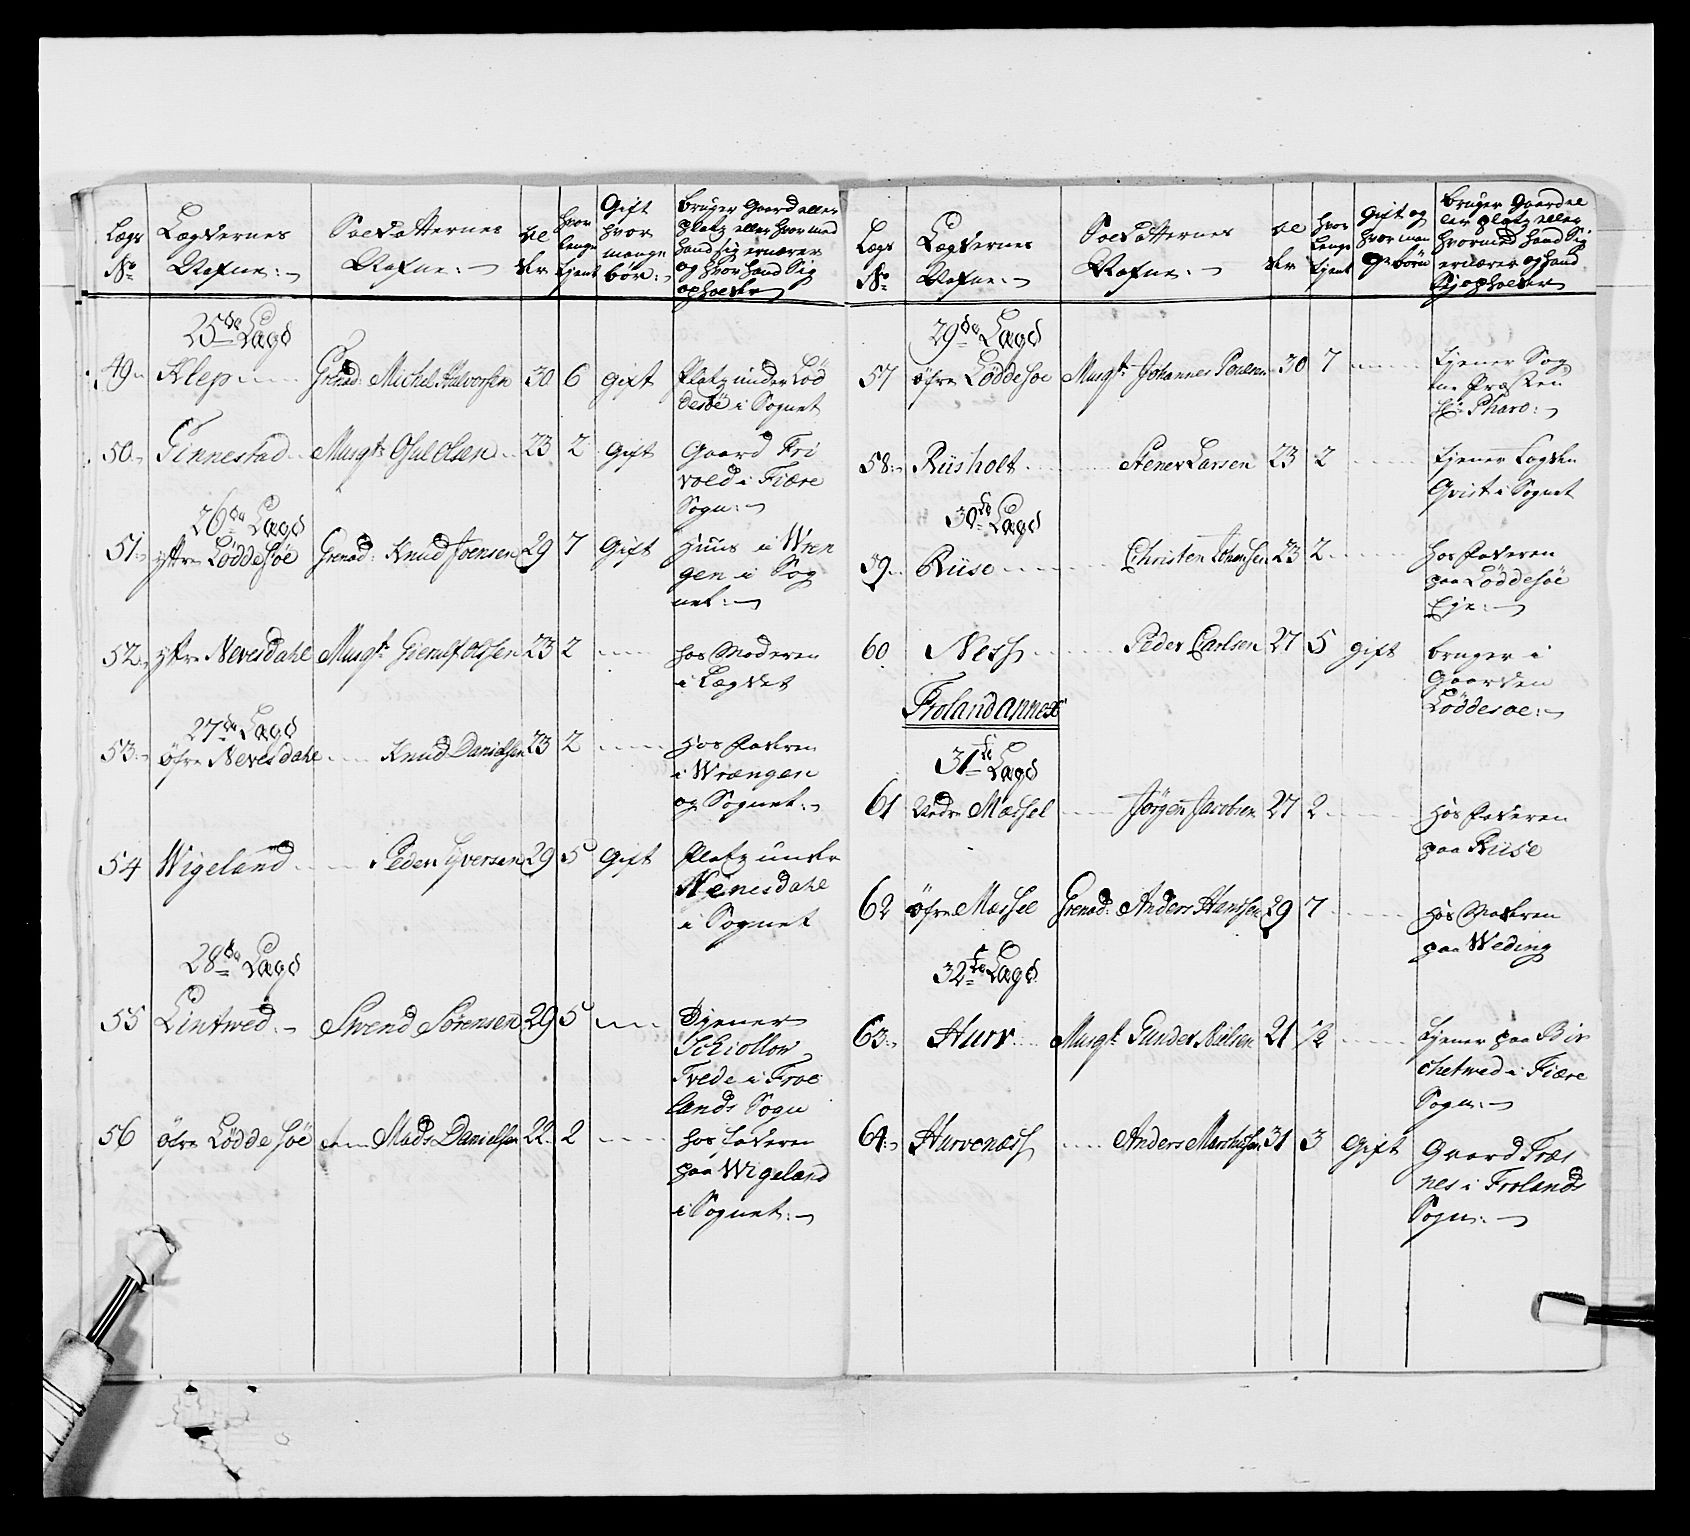 Lægs No
Lægdernes Nafne:
Soldatternes Nafne:
Al der
hvor Lenge tjent
Gift hvor mange börn:
bruger Gaard eller platz eller hvor med hand sig ernærer og hvor hand Sig opholder
25de Lægd
49 Klep Grenad: Michel Halvorsen 30 6 gift Platz under Löd
desöe i Sognet
50 Finnestad Musqt: Olsen 23 2 Gift Gaard Fri
vold i Fiære
Sogn:
26de Lægd
51 yttre Löddesöe Grenad: Knud Joensen 29 7 Gift Huus i Wren
gen i Sog
net:
52 yttre Nevesdahl Musqt: Olsen 23 2 hos Moderen
i Lægdet
27de Lægd
53 öfre Nevesdahl Knud Danielsen 23 2 Hos Faderen
i Wrængen
og Sognet:
54 Wigeland Peder Iversen 29 5 Gift Platz under
Nevesdahl
i Sognet
28de Lægd
55 Lintwed Swend Sörensen 29 5 Tjener
Tvede i Froe
lands Sogn
56 öfre Löddesöe Mads Danielsen 22 2 hos faderen
paa Wigeland
i Sognet:
Lægs No
Lægdernes Nafne:
Soldatternes Nafne:
Al der
hvor Lenge tjent
Gift og hvor man ge börn
bruger Gaard el ler platz eller hvormed hand Sig ernærer og hand Sig opholder
29de Lægd
57 öfre Löddesöe Musqt: Johannes Poulsen 30 7 tjener Sog
ne Præsten
Hr: Pharo:
58 Riisholt Stener Larsen 23 2 tjener Lægden
Qvist i Sognet
30te Lægd
59 Riise Christen Johansen 23 2 hos Faderen
paa Löddesöe
Eje:
60 Ness Peder Carlsen 27 5 gift bruger i
Gaarden
Löddesöe:
Froland annex
31te Lægd
61 Nedre Mæssel Jörgen Jacobsen 27 2 Hos Faderen
paa Riise
62 öfre Mæssel Grenad: Anders Hansen 29 7 Hos Moderen
paa Weding
32te Lægd
63 Hurv Musqt: Gunder Nielsen 21 1/2 tjener paa Bir
chetwed i Fiære
Sogn:
64 Hurvenæss Anders 31 3 Gift Gaard Træs
nes i Frolands
Sogn: